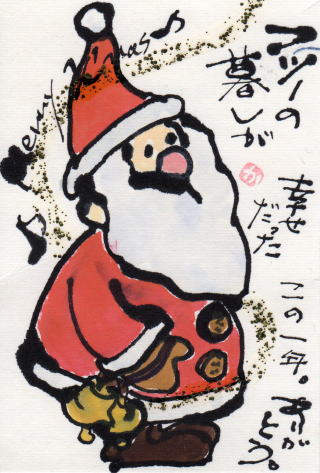 Merry Xmas
フツーの
暮しが
幸せ
だった
この一年。
ありが
とう。
か